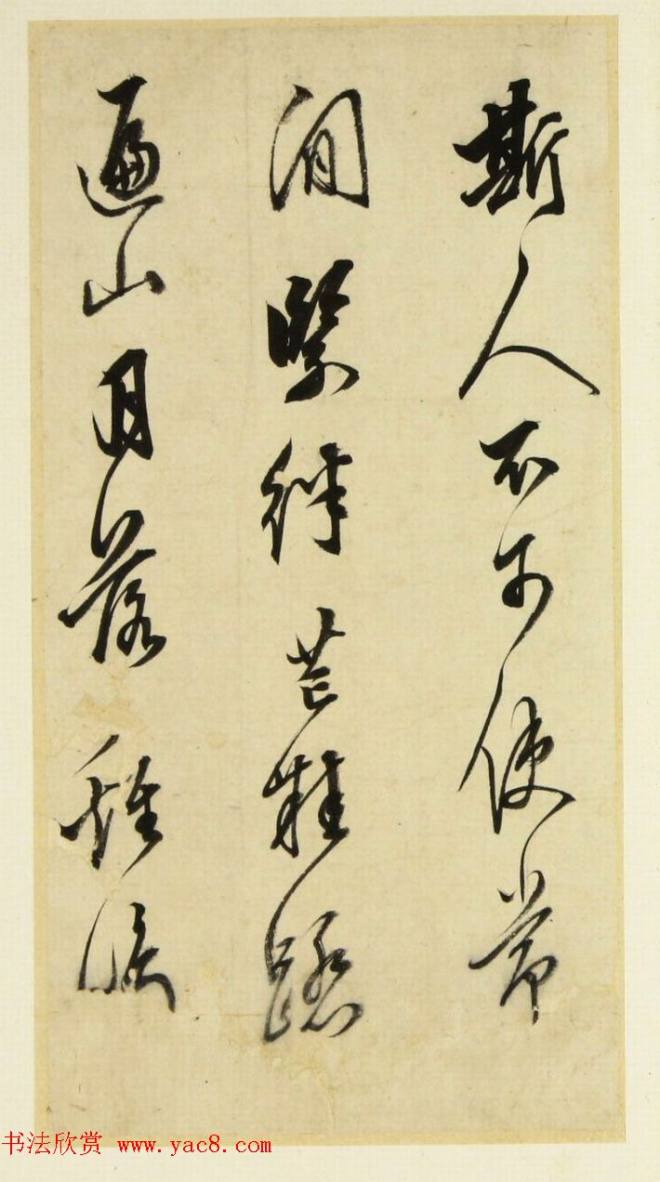 斯人不可使常
閒緊絆芒鞋踏
遍山月落
书法欣赏 www.yac8.com